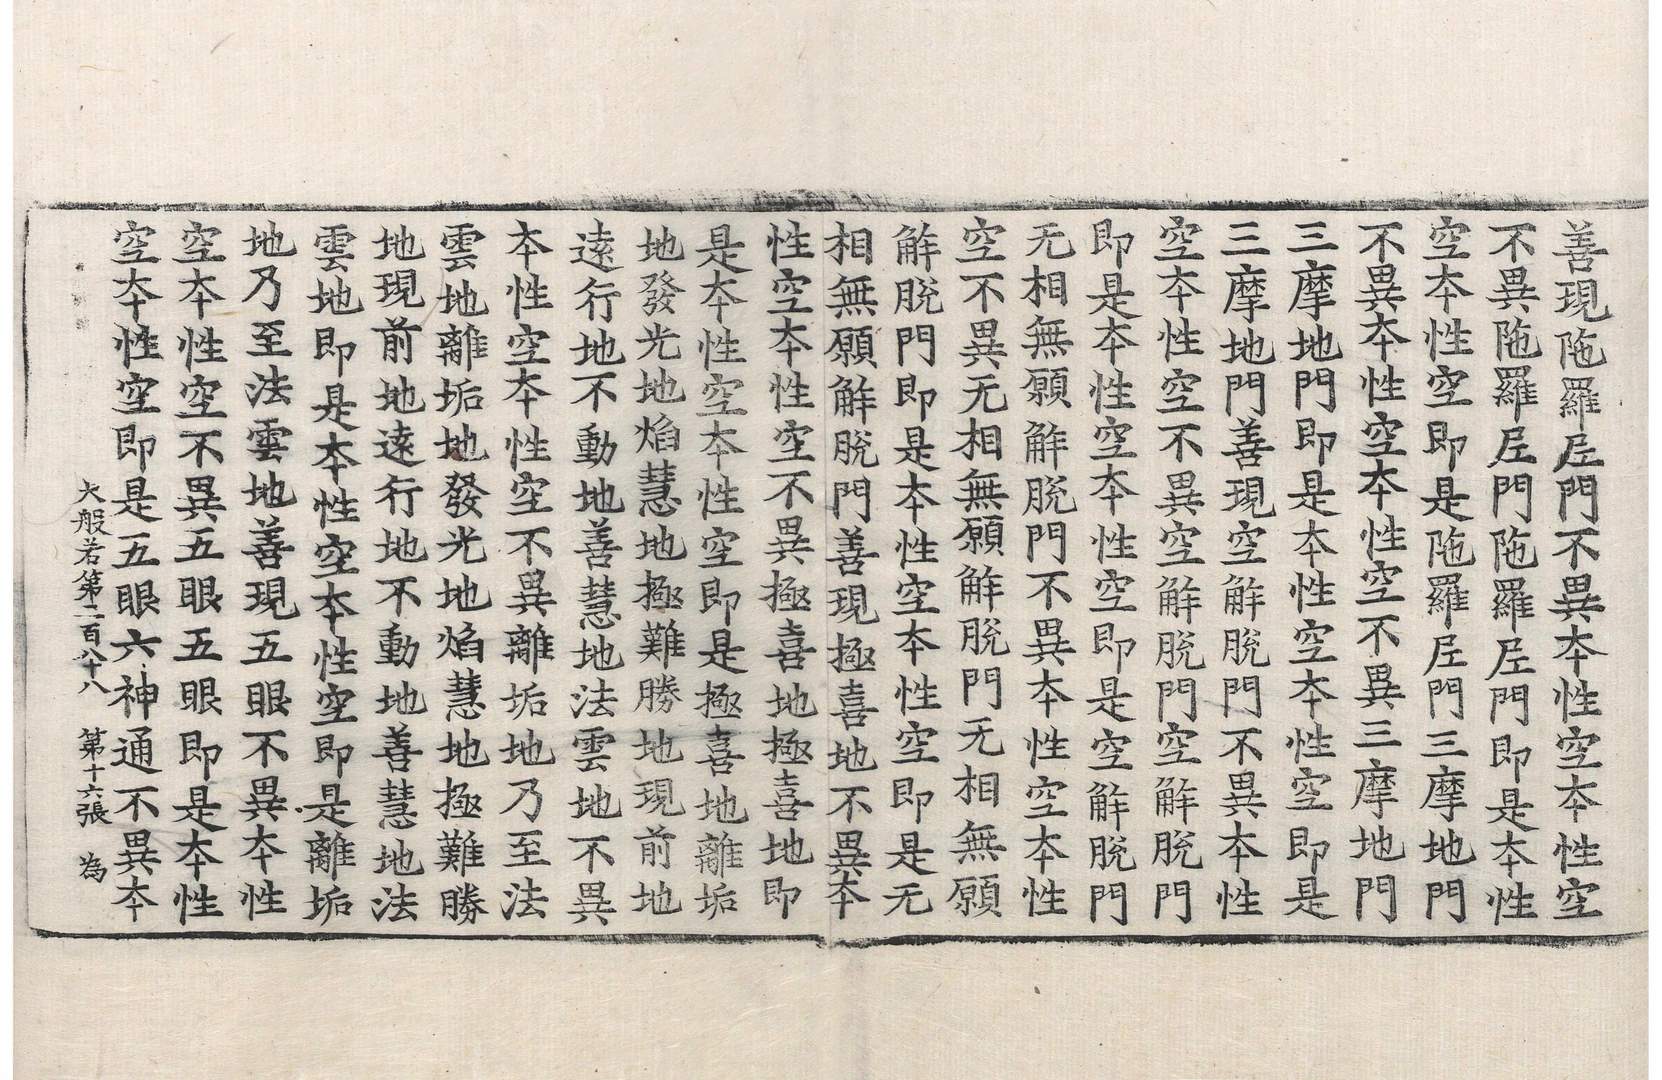 善現陁羅𡰱門不異夲性空夲性空
不異陁羅𡰱門陁羅𡰱門即是夲性
空夲性空即是陁羅𡰱門三摩地門
不異夲性空夲性空不異三摩地門
三摩地門即是夲性空夲性空即是
三摩地門善現空觧脫門不異夲性
空夲性空不異空觧脫門空觧脫門
即是夲性空夲性空即是空觧脫門
无相無願觧脫門不異夲性空夲性
空不異无相無願觧脫門无相無願
觧脫門即是夲性空夲性空即是无
相無願觧脫門善現極喜地不異夲
性空夲性空不異極喜地極喜地即
是夲性空夲性空即是極喜地離垢
地發光地焰慧地極難勝地現前地
遠行地不動地善慧地法雲地不異
夲性空夲性空不異離垢地乃至法
雲地離垢地發光地焰慧地極難勝
地現前地遠行地不動地善慧地法
雲地即是夲性空夲性空即是離垢
地乃至法雲地善現五眼不異夲性
空夲性空不異五眼五眼即是夲性
空夲性空即是五眼六神通不異夲
大般若第二百八十八 第十六張 為